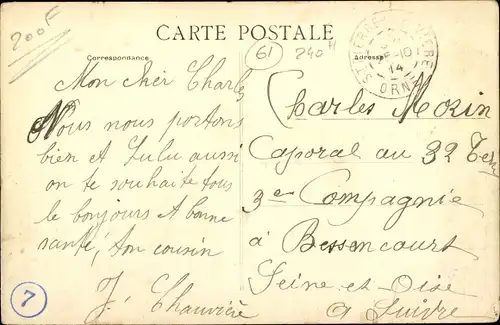 200F
CARTE POSTALE
61
240H
Correspondance
Adresse
ORNE
14
Mon cher Charles
Nous nous portons
bien et Lulu aussi
on te souhaite tous
le bonjours et bonne
santé, ton cousin
J. Chauvière
Charles Morin
Caporal au 32 Ter
3e Compagnie
à Bessencourt
Seine et Oise
a Suivre
7